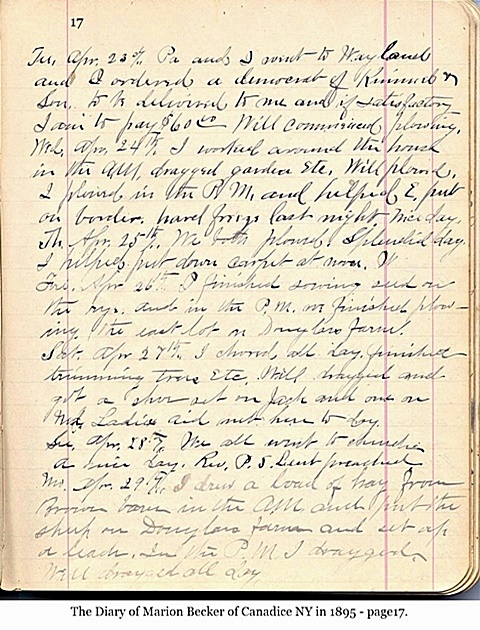 17
Tu, Apr. 23rd, Pa and I went to Wayland
and I ordered a democrat of Kimmel &
Son. to be delivered to me and if satisfactory
I am to pay $60.00 Will commenced plowing.
Wed, Apr. 24th, I worked around the house
in the AM, dragged garden Etc. Will plowed.
I plowed in the P.M. and helped E. put
on border. hard froze last night nice day.
Th. Apr. 25th, We both plowed. Splendid day.
I helped put down carpet at noon.
Fri. Apr 26th I finished sowing seed on
the rye. and in the P.M. we finished plow-
ing the east lot on Douglass farm.
Sat. Apr 27th, I chored all day, finished
trimming trees Etc. Will dragged and
got a shoe set on Jack and one on
Ned, Ladies aid met here to day.
Su, Apr. 28th, We all went to church.
a nice day. Rev. P. S. preached
Mo. Apr. 29th, I drew a load of hay from
Brown barn in the AM and put the
sheep on Douglass farm and set up
a leach. In the P.M I dragged.
Will dragged all day
The Diary of Marion Becker of Canadice NY in 1895 - page17.